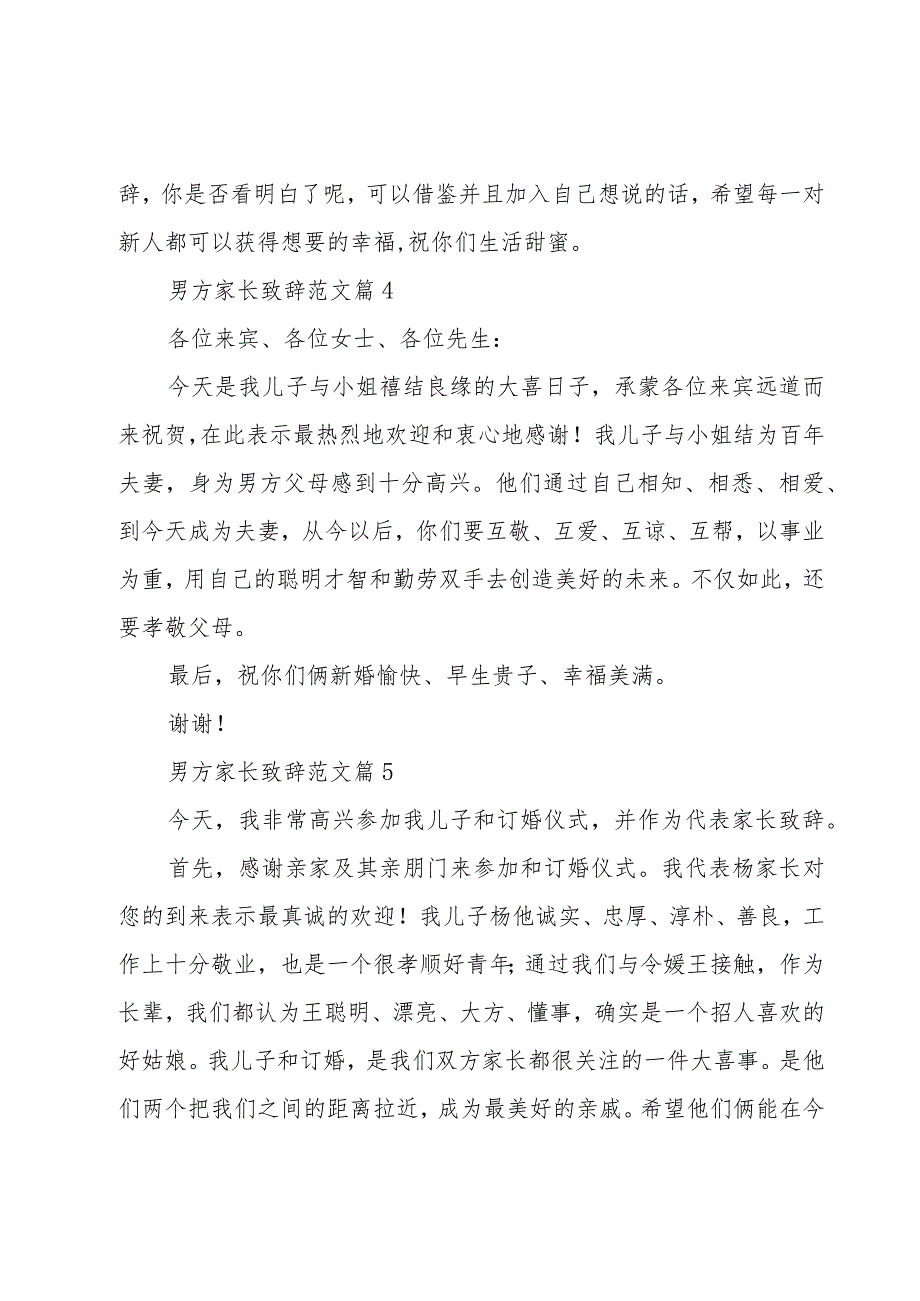 辞，你是否看明白了呢，可以借鉴并且加入自己想说的话，希望每一对
新人都可以获得想要的幸福,祝你们生活甜蜜。
男方家长致辞范文篇4
各位来宾、各位女士、各位先生：
今天是我儿子与小姐禧结良缘的大喜日子，承蒙各位来宾远道而
来祝贺,在此表示最热烈地欢迎和衷心地感谢！我儿子与小姐结为百年
夫妻，身为男方父母感到十分高兴。他们通过自己相知、相悉、相爱、
到今天成为夫妻，从今以后，你们要互敬、互爱、互谅、互帮，以事业
为重，用自己的聪明才智和勤劳双手去创造美好的未来。不仅如此，还
要孝敬父母。
最后，祝你们俩新婚愉快、早生贵子、幸福美满。
谢谢！
男方家长致辞范文篇5
今天，我非常高兴参加我儿子和订婚仪式，并作为代表家长致辞。
首先，感谢亲家及其亲朋门来参加和订婚仪式。我代表杨家长对
您的到来表示最真诚的欢迎！我儿子杨他诚实、忠厚、淳朴、善良，工
作上十分敬业，也是一个很孝顺好青年；通过我们与令媛王接触，作为
长辈，我们都认为王聪明、漂亮、大方、懂事，确实是一个招人喜欢的
好姑娘。我儿子和订婚，是我们双方家长都很关注的一件大喜事。是他
们两个把我们之间的距离拉近，成为最美好的亲戚。希望他们俩能在今